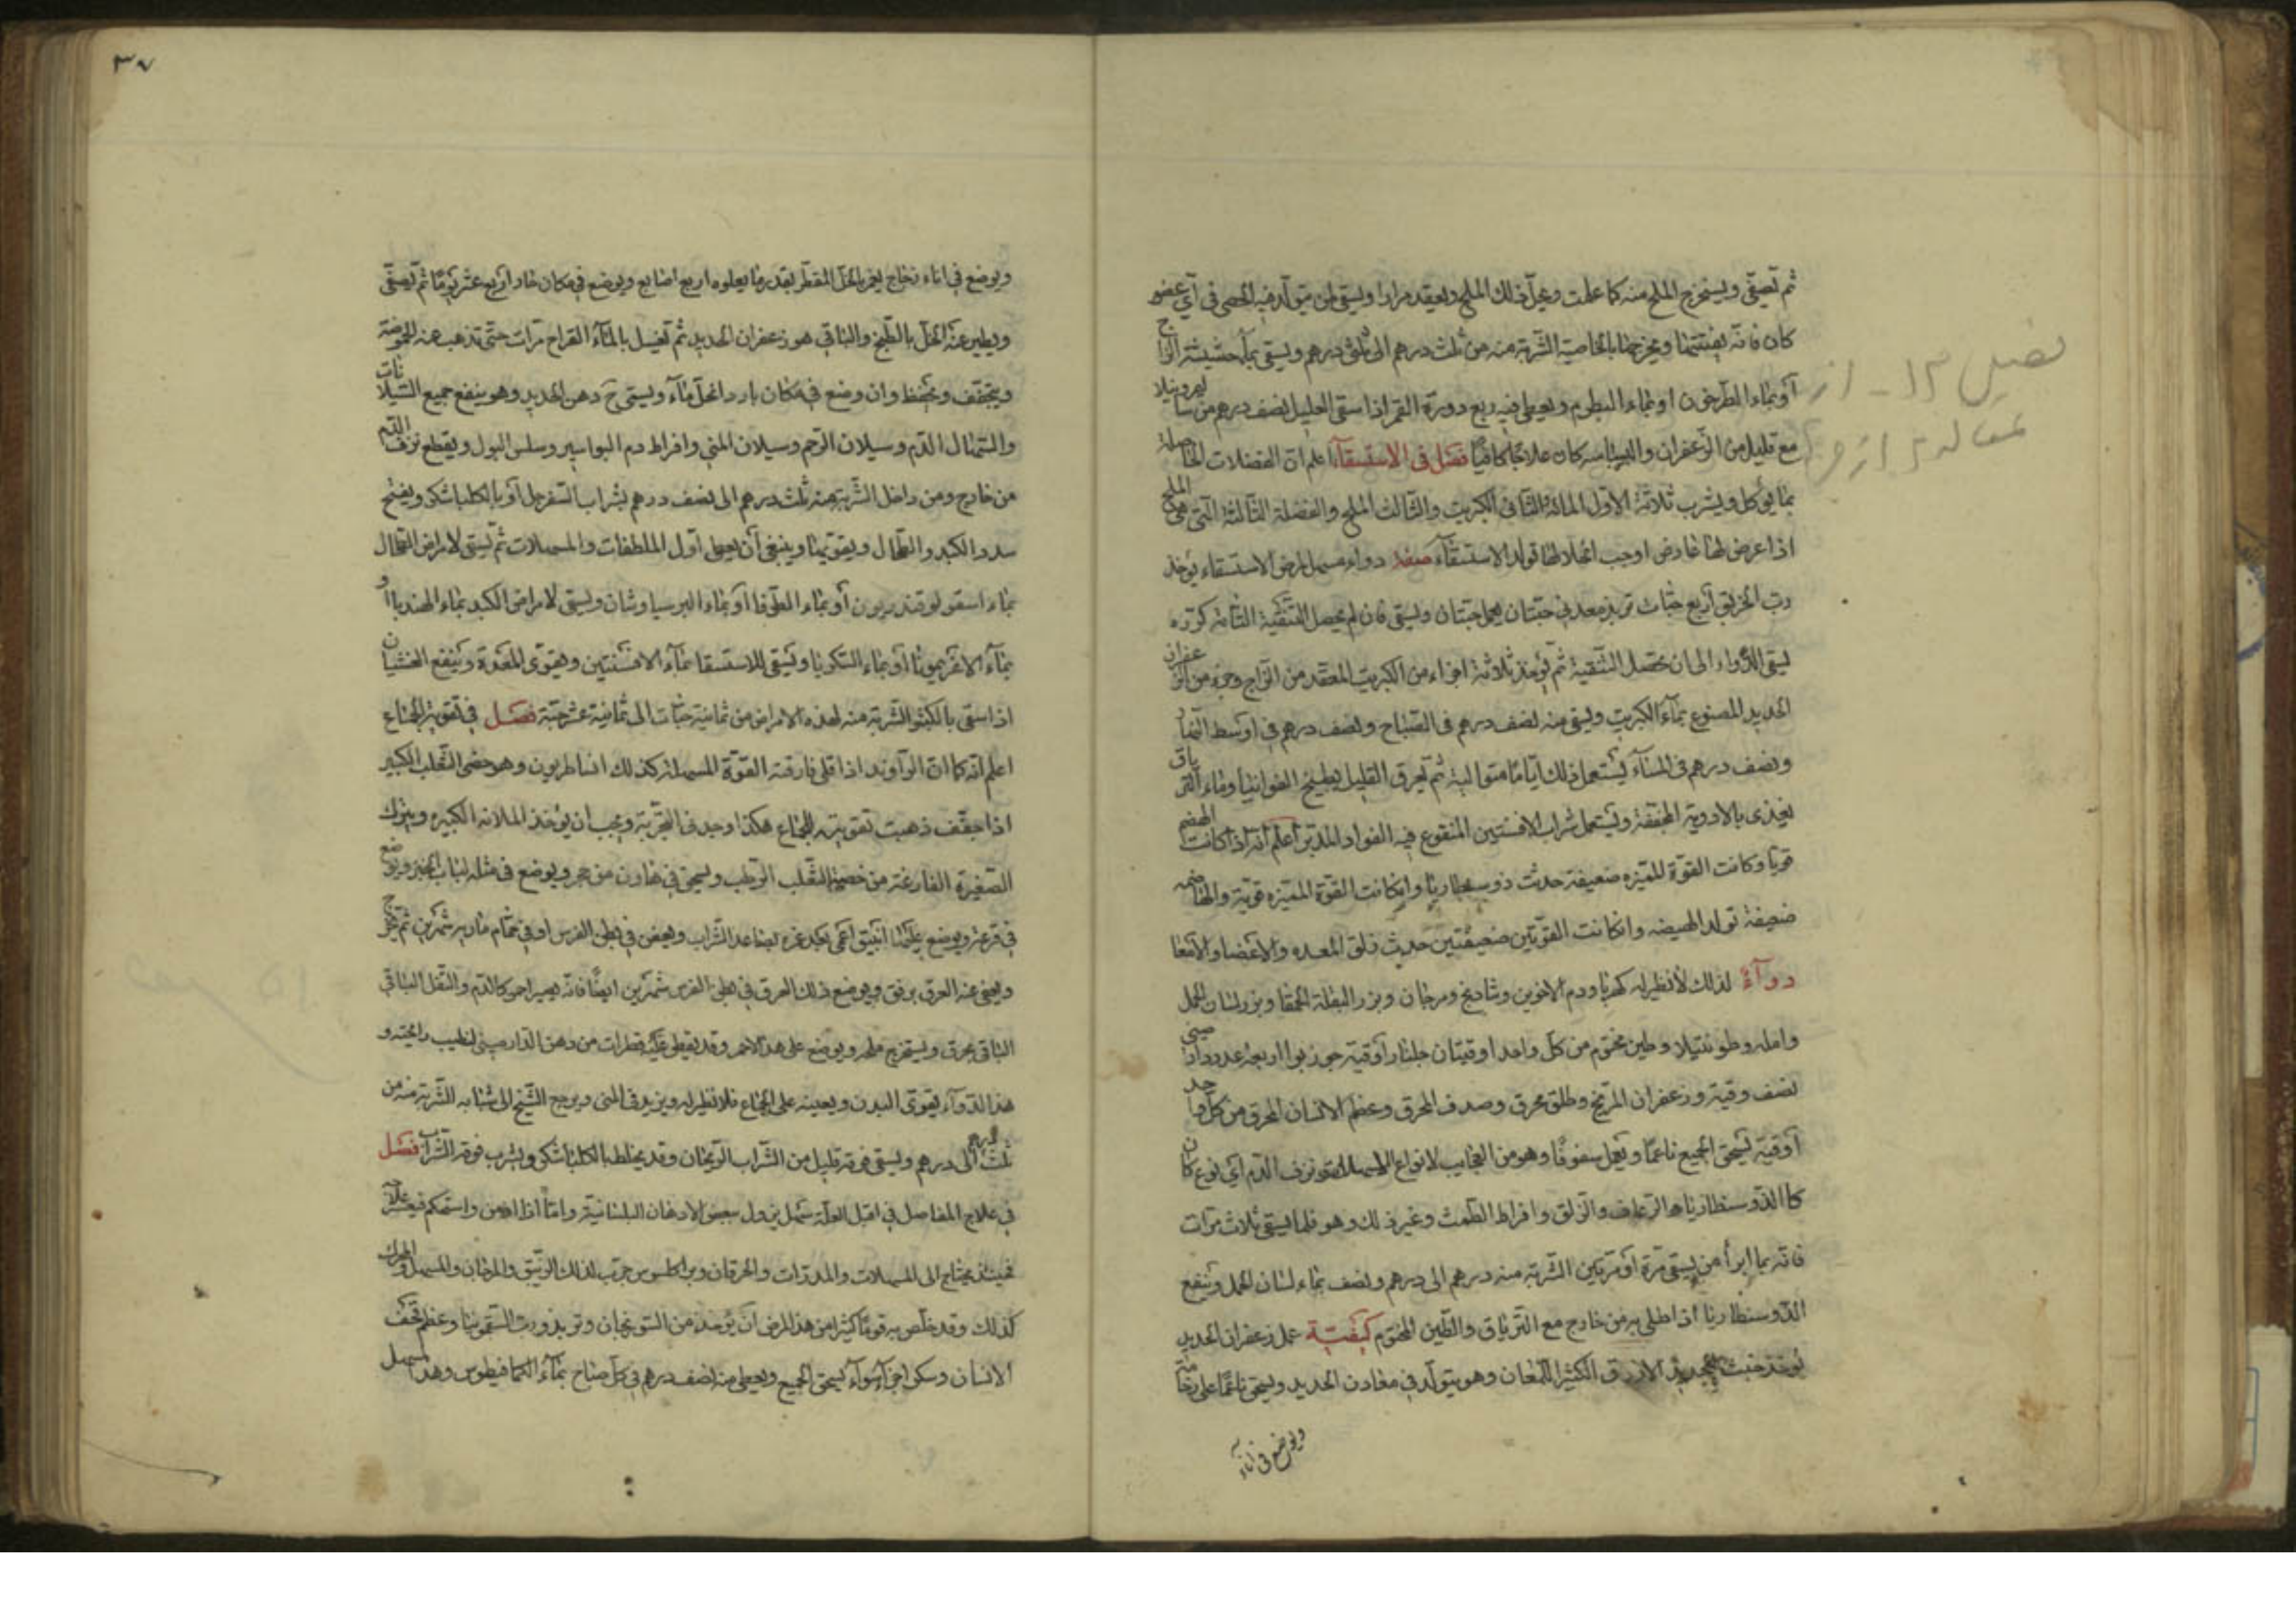 ثم تصفّى ويستخرج الملح منه كما علمت وحلّ ذلك الملح ويعقد مرارا ويسقى لمن يتولّد فيه الحصى في أيّ عضو
كان فانه يفتتها ويخرجها بالخاصية الشربة منه من ثلث درهم الى ثلثى درهم ويسقى بماء حشيشة الزاج
أو بماء الطرخون او بماء البطم ويعطى فيه ربع دورة القمر اذا سقى العليل نصف درهم من سال برونيلا
مع قليل من الزعفران والبسباسه كان علاجًا كافيًا فصل في الاستسقاء اعلم ان الفضلات الحاصلة
بما يؤكل ويشرب ثلاثة الاوّل المائة الثاني الكبريت والثالث الملح والفضلة الثالثة التى هي الملح
اذا عرض لها عارض اوجب انحلالها تولد الاستسقاء صفة دواء مسهل لمرض الاستسقاء يؤخذ
ربّ الخربق أربع حبّات تربد معدني حبّتان يعمل حبّتان ويسقى فان لم يحصل التنقية التامّة كرّره
يسقى الدواء الى ان تحصل التنقية ثم يؤخذ ثلاثة اجزاء من الكبريت المصعّد من الزاج وجزء من زعفران
الحديد المصنوع بماء الكبريت ويسقى منه نصف درهم في الصباح ونصف درهم في اوسط النهار
ونصف درهم في المساء يستعمل ذلك ايّامًا متوالية ثم يعرق القليل بطبيخ الفوانيا وماء الترياق
يغذى بالادوية المجففة ويستعمل شراب الافسنتين المنقوع فيه الفولاد المدبّر اعلم انّه اذا كانت الهضم
قويّا وكانت القوة المميّزه ضعيفة حدثت ذوسنطاريّا وان كانت القوة المميّزه قويّة والهاضمه
ضعيفة تولد الهيضه وان كانت القوّتين ضعيفتين حدث زلق المعده والاعضا والامعا
دوآء لذلك لا نظير له كهربا ودم الاخوين وشادنج ومرجان وبزر البقلة الحمقا وبزر لسان الحمل
وامله وطونتيلا وطين مختوم من كلّ واحد اوقيتان جلنار اوقية جوز بوا اربعة عدد دار صينى
نصف وقيّة وزعفران المريخ وطلق محرق وصدف المحرق وعظم الانسان المحرق من كلّ واحد
أوقيّة يسحق الجميع ناعمًا ويعمل سفوفًا وهو من العجايب لانواع الاسهال ونزف الدّم أيّ نوع كان
كالذّوسنطاريا والرّعاف والزلق وافراط الطّمث وغير ذلك وهو فلما يسقى ثلاث مرّات
فانّه بما ابرأ من يسقى مرّة او مرّتين الشربة منه درهم الى درهم ونصف بماء لسان الحمل وينفع
الذّوسنطاريا اذا طلى به من خارج مع الترياق والطين المختوم كيفيّة عمل زعفران الحديد
يؤخذ خبث الحديد الازرق الكثير اللّمعان وهو يتولّد في معادن الحديد ويسحق ناعمًا على رخامة
ويوضع في اناء
فصل ۱۳ - از
مقاله
۳۷
ويوضع في اناء زجاج يغمر بالخلّ المقطّر بقدر ما يعلوه اربع اصابع ويوضع في مكان حارّ اربع عشر يومًا ثم تصفّى
ويطير عنه الخلّ بالطبخ والباقي هو زعفران الحديد ثم تغسل بالماء القراح مرّات حتّى تذهب عنه الحموضة
ويجفّف ويحفظ وان وضع في مكان بارد انحلّ ماء ويسمّى ح دهن الحديد وهو ينفع جميع السّيلانات
والسهال الدّم وسيلان الرّحم وسيلان المني وافراط دم البواسير وسلس البول ويقطع نزف الدّم
من خارج ومن داخل الشّربة منه ثلث درهم الى نصف درهم بشراب السّفرجل أو بالكلباشكر ويفتح
سدد الكبد والطّحال ويقويهما وينبغي أن يعطى أوّل الملطفات والمسهلات ثم يسقى لامراض الطّحال
بماء اسقولوقندريون أو بماء الطّرفا أو بماء البرسياوشان ويسقى لامراض الكبد بماء الهندبا أو
بماء الاغريمونيا أو بماء السكوريا ويسقى للاستسقا بماء الافسنتين وهو يقوّى المعدة وينفع الغشيان
اذا سقى بالكبتو الشربة منه لهذه الامراض من ثمانية حبّات الى ثمانية عشر حبّة فصل في تقوية الجماع
اعلم انّه كما انّ الرّاوند اذا قلى فارقته القوّة المسهلة كذلك انساطريون وهو خصى الثّعلب الكبير
اذا جفّف ذهبت تقويته للجماع هكذا وجد في التجربة ويجب ان يؤخذ الملانه الكبيره ويترك
الصغيرة الفارغة من خصية الثّعلب الرّطب ويسحق في هاون من حجر ويوضع في مثله لباب الخبز ويوضع
في قرعة ويوضع عليها انبيق اعمى بعد غمره بصاعد الشّراب ويعفن في بطن الفرس او في حمّام ماريه شهرين ثم يخرج
ويصفى عنه العرق برفق ويوضع ذلك العرق في بطن الفرس شهرين ايضًا فانّه يصير احمر كالدّم والثّفل الباقي
الباقي يحرق ويستخرج ملحه ويوضع على هذا الاحمر وقد يقطر عليه قطرات من دهن الدّار صيني لتطيب رائحته و
هذا الدّواء يقوّى البدن ويعينه على الجماع فلا نظير له ويزيد في المنى ويرجع الشّيخ الى شبابه الشّربة منه من
ثلث درهم الى درهم ويسقى فوقه قليل من الشّراب الرّيحان وقد يخلط بالكلباشكر ويشرب فوقه الشّراب فصل
في علاج المفاصل في اقبل العلّة سهل يزول ببعض الادهان البلسانية وامّا اذا ازمن واستحكم فيعسر علاجه
فحينئذ يحتاج الى المسهلات والمدرّات والمعرقات وبراكلسوس جرّب لذلك الزّيبق والمرجان والمسهل والمحرك
كذلك وقد خلّص به قومًا كثيرا من هذا المرض ان يؤخذ من السّورنجان وتربد وربّ السّقمونيا وعظم قحف
الانسان وسكر اجزآء سوآء يسحق الجميع ويعطى منه نصف درهم في كلّ صباح بماء الكمافيطوس وهذا المسهل